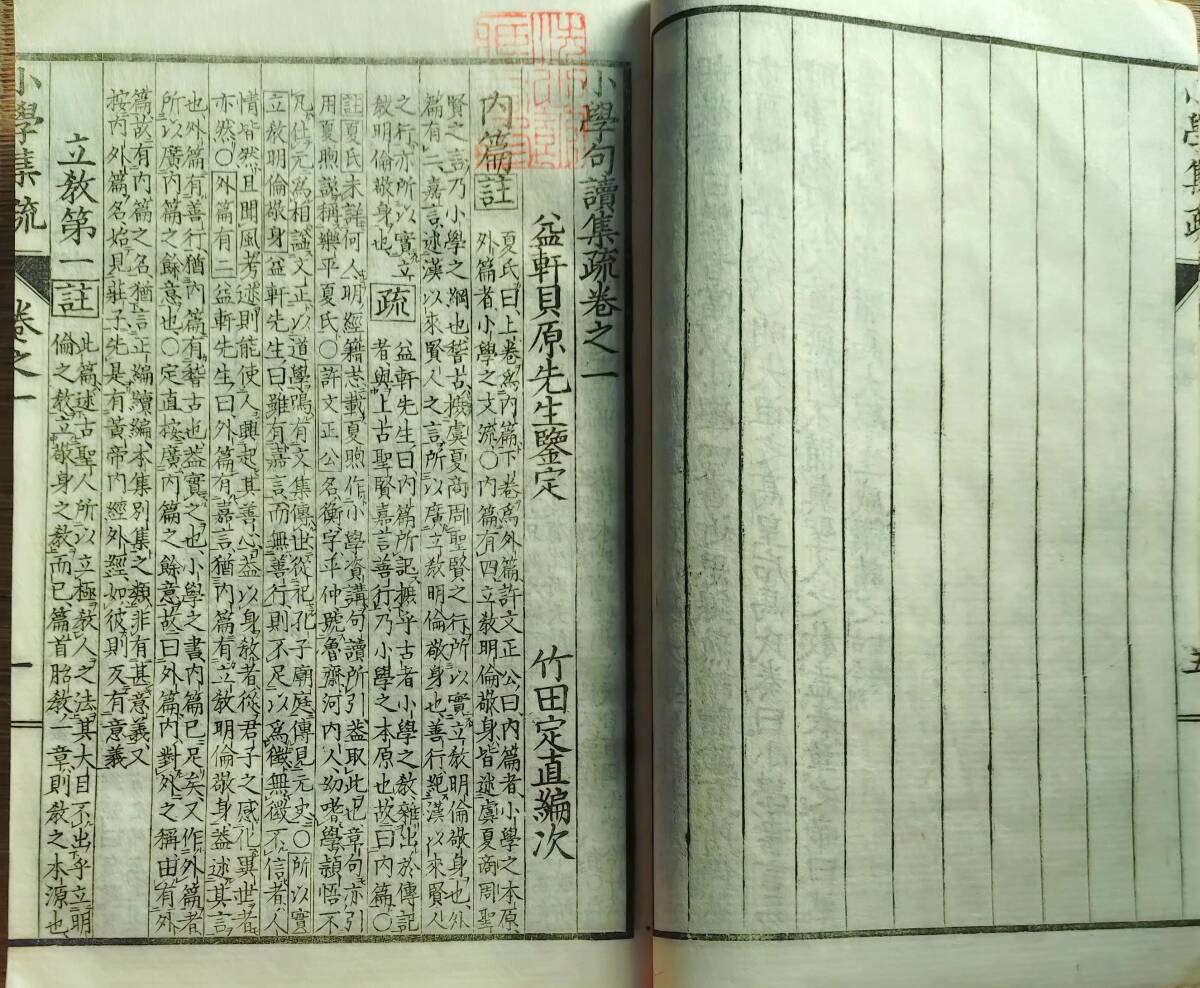 小學句讀集疏卷之一
益軒貝原先生鑒定　竹田定直編次
內篇 註
夏氏曰上卷爲內篇下卷爲外篇許文正公曰內篇者小學之本原
外篇者小學之支流○內篇有四立敎明倫敬身皆述虞夏商周聖
賢之言乃小學之綱也稽古摭虞夏商周聖賢之行所以實立敎明倫敬身也外
篇有二嘉言述漢以來賢人之言所以廣立敎明倫敬身也善行紀漢以來賢人
之行亦所以實立
敎明倫敬身也
疏
益軒先生曰內篇所記摭乎古者小學之敎雜出於傳記
者與上古聖賢嘉言善行乃小學之本原也故曰內篇○
註夏氏未詳何人明經籍志載夏煦作小學資講句讀所引蓋取此也章句亦引
用夏煦說稱樂平夏氏○許文正公名衡字平仲號魯齋河內人幼嗜學穎悟不
凡仕元爲相謚文正以道學鳴有文集傳世從祀孔子廟庭傳見元史○所以實
立敎明倫敬身益軒先生曰雖有嘉言而無善行則不足以爲徵無徵不信者人
情皆然且聞風考述則能使人興起其善心蓋以身敎者從君子之感化異世者
亦然○外篇有二益軒先生曰外篇有嘉言猶內篇有立敎明倫敬身蓋述其言
也外篇有善行猶內篇有稽古也蓋實之也小學之書內篇已足矣又作外篇者
所以廣內篇之餘意也○定直按廣內篇之餘意故曰外篇內對外之稱由有外
篇故有內篇之名猶言正編續編本集別集之類非有甚意義又
按內外篇名始見莊子先是有黃帝內經外經如彼則反有意義
立敎第一 註
此篇述古聖人所以立極敎人之法其大目不出乎立明
倫之敎立敬身之敎而已篇首胎敎一章則敎之本源也
小學集疏　卷之一　一